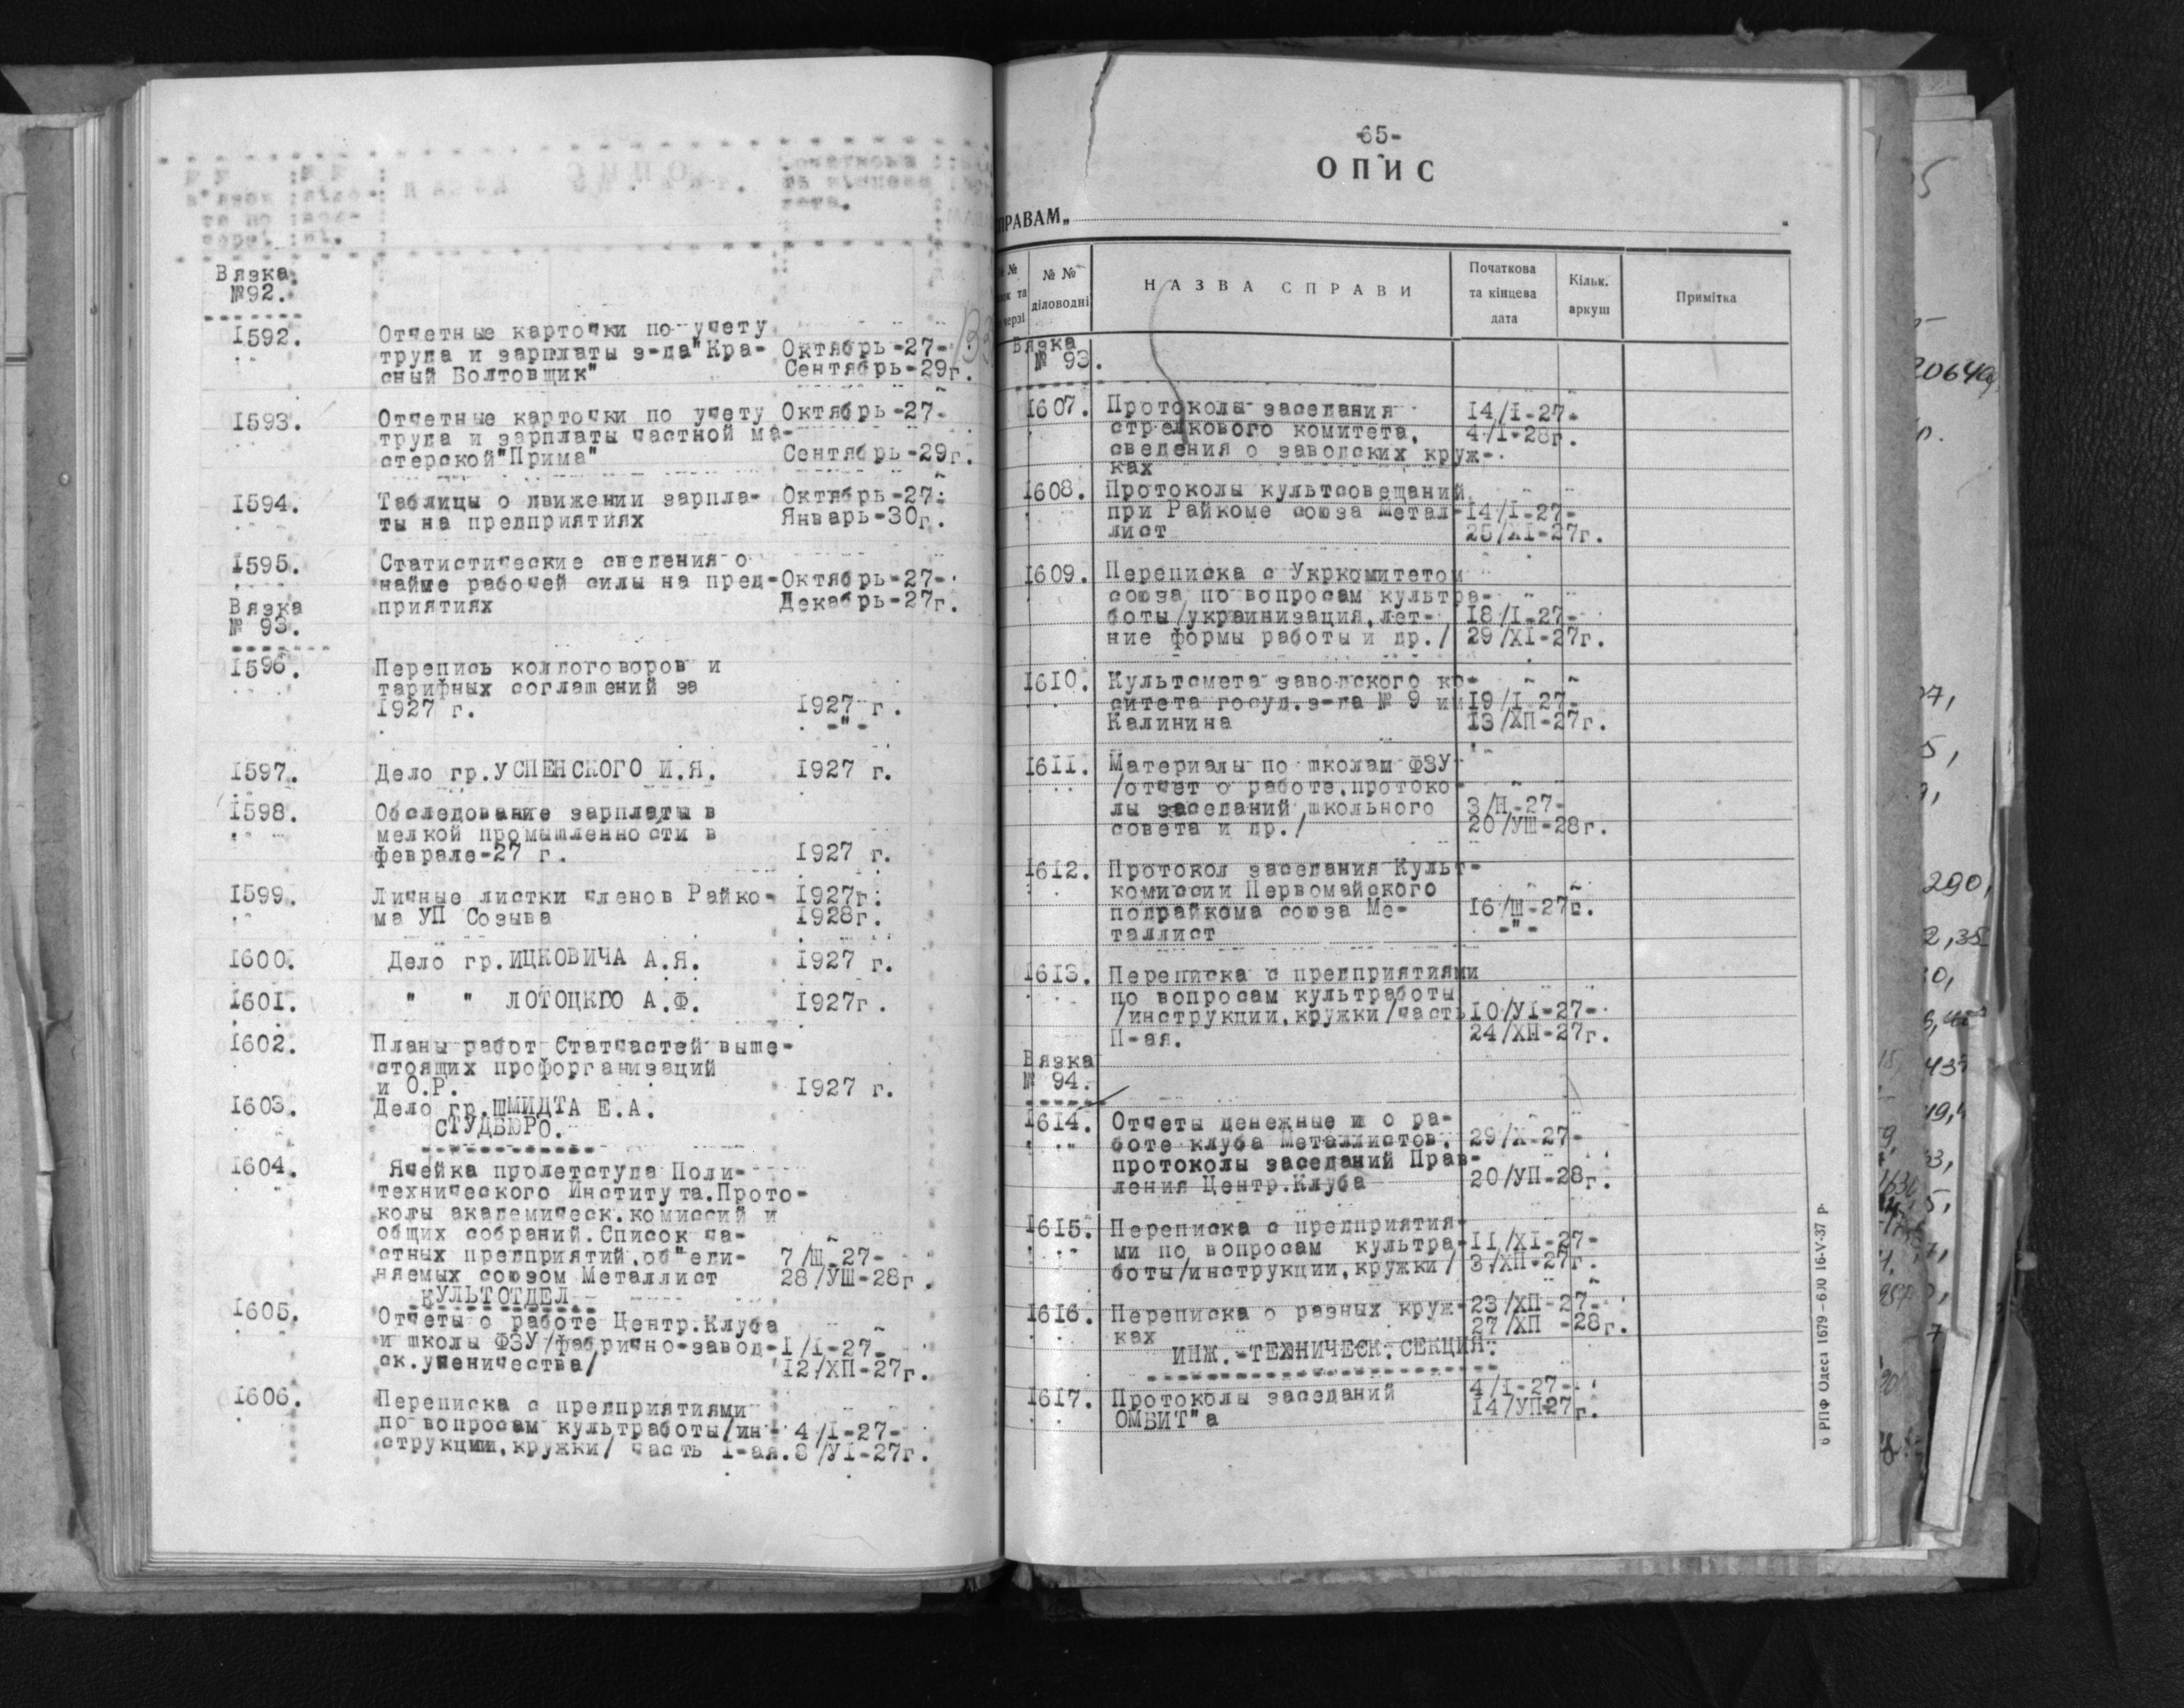 Вязка
№92.
1592. Отчетные карточки по учету
труда и зарплаты з-да"Кра- Октябрь-27-
сный Болтовщик" Сентябрь-29г.
1593. Отчетные карточки по учету Октябрь-27-
труда и зарплаты частной ма-
стерской"Прима" Сентябрь-29г.
1594. Таблицы о движении зарпла- Октябрь-27-
ты на предприятиях Январь-30г.
1595. Статистические сведения о
найме рабочей силы на пред- Октябрь-27-
приятиях Декабрь-27г.
Вязка
№ 93.
1596. Перепись колдоговоров и
тарифных соглашений за
1927 г. 1927 г.
-"-
1597. Дело гр.УСПЕНСКОГО И.Я. 1927 г.
1598. Обследование зарплаты в
мелкой промышленности в
феврале-27 г. 1927 г.
1599. Личные листки членов Райко- 1927г.
ма УП Созыва 1928г.
1600. Дело гр.ИЦКОВИЧА А.Я. 1927 г.
1601. " " ЛОТОЦКГО А.Ф. 1927г.
1602. Планы работ Статчастей выше-
стоящих профорганизаций
и О.Р. 1927 г.
1603. Дело гр.ШМИДТА Е.А.
СТУДБЮРО.
1604. Ячейка пролетстуда Поли-
технического Института.Прото-
колы академическ.комиссий и
общих собраний.Список ча-
стных предприятий,об"еди- 7/Ш-27-
няемых союзом Металлист 28/УШ-28г.
КУЛЬТОТДЕЛ
1605. Отчеты о работе Центр.Клуба
и школы ФЗУ/фабрично-завод- I/I-27-
ск.ученичества/ 12/ХП-27г.
1606. Переписка с предприятиями
по вопросам культработы/ин- 4/I-27-
струкции,кружки/ часть I-ая. 8/УI-27г.
-65-
ОПИС
СПРАВАМ„
№ № № №
діловодні
черзі
НАЗВА СПРАВИ
Початкова
та кінцева
дата
Кільк.
аркуш
Примітка
Вязка
№ 93.
1607. Протоколы заседания 14/I-27-
стрелкового комитета, 4/I-28г.
сведения о заводских круж-
ках
1608. Протоколы культсовещаний
при Райкоме союза Метал- 14/I-27-
лист 25/XI-27г.
1609. Переписка с Укркомитетом
союза по вопросам культра-
боты/украинизация,лет- 18/I-27-
ние формы работы и др./ 29/XI-27г.
1610. Культсмета заводского ко-
ситета госуд.з-да № 9 им 19/I-27-
Калинина 13/ХП-27г.
1611. Материалы по школам ФЗУ
/отчет о работе,протоко-
лы заседаний школьного 3/Н-27-
совета и др./ 20/УШ-28г.
1612. Протокол заседания Культ-
комиссии Первомайского
подрайкома союза Ме- 16/Ш-27г.
таллист -"-
1613. Переписка с предприятиями
по вопросам культработы
/инструкции,кружки/часть 10/УI-27-
П-ая. 24/ХН-27г.
Вязка
№ 94.
1614. Отчеты денежные и о ра-
боте клуба Металлистов, 29/Х-27-
протоколы заседаний Прав-
ления Центр.Клуба 20/УП-28г.
1615. Переписка с предприятия-
ми по вопросам культра- II/XI-27-
боты/инструкции,кружки/ 3/ХП-27г.
1616. Переписка о разных круж- 23/ХП-27-
ках 27/ХП -28г.
ИНЖ.-ТЕХНИЧЕСК.СЕКЦИЯ.
1617. Протоколы заседаний 4/I-27-
ОМБИТ"а 14/УП-27г.
РПФ Одеса 1679-630 16-V-37 р.